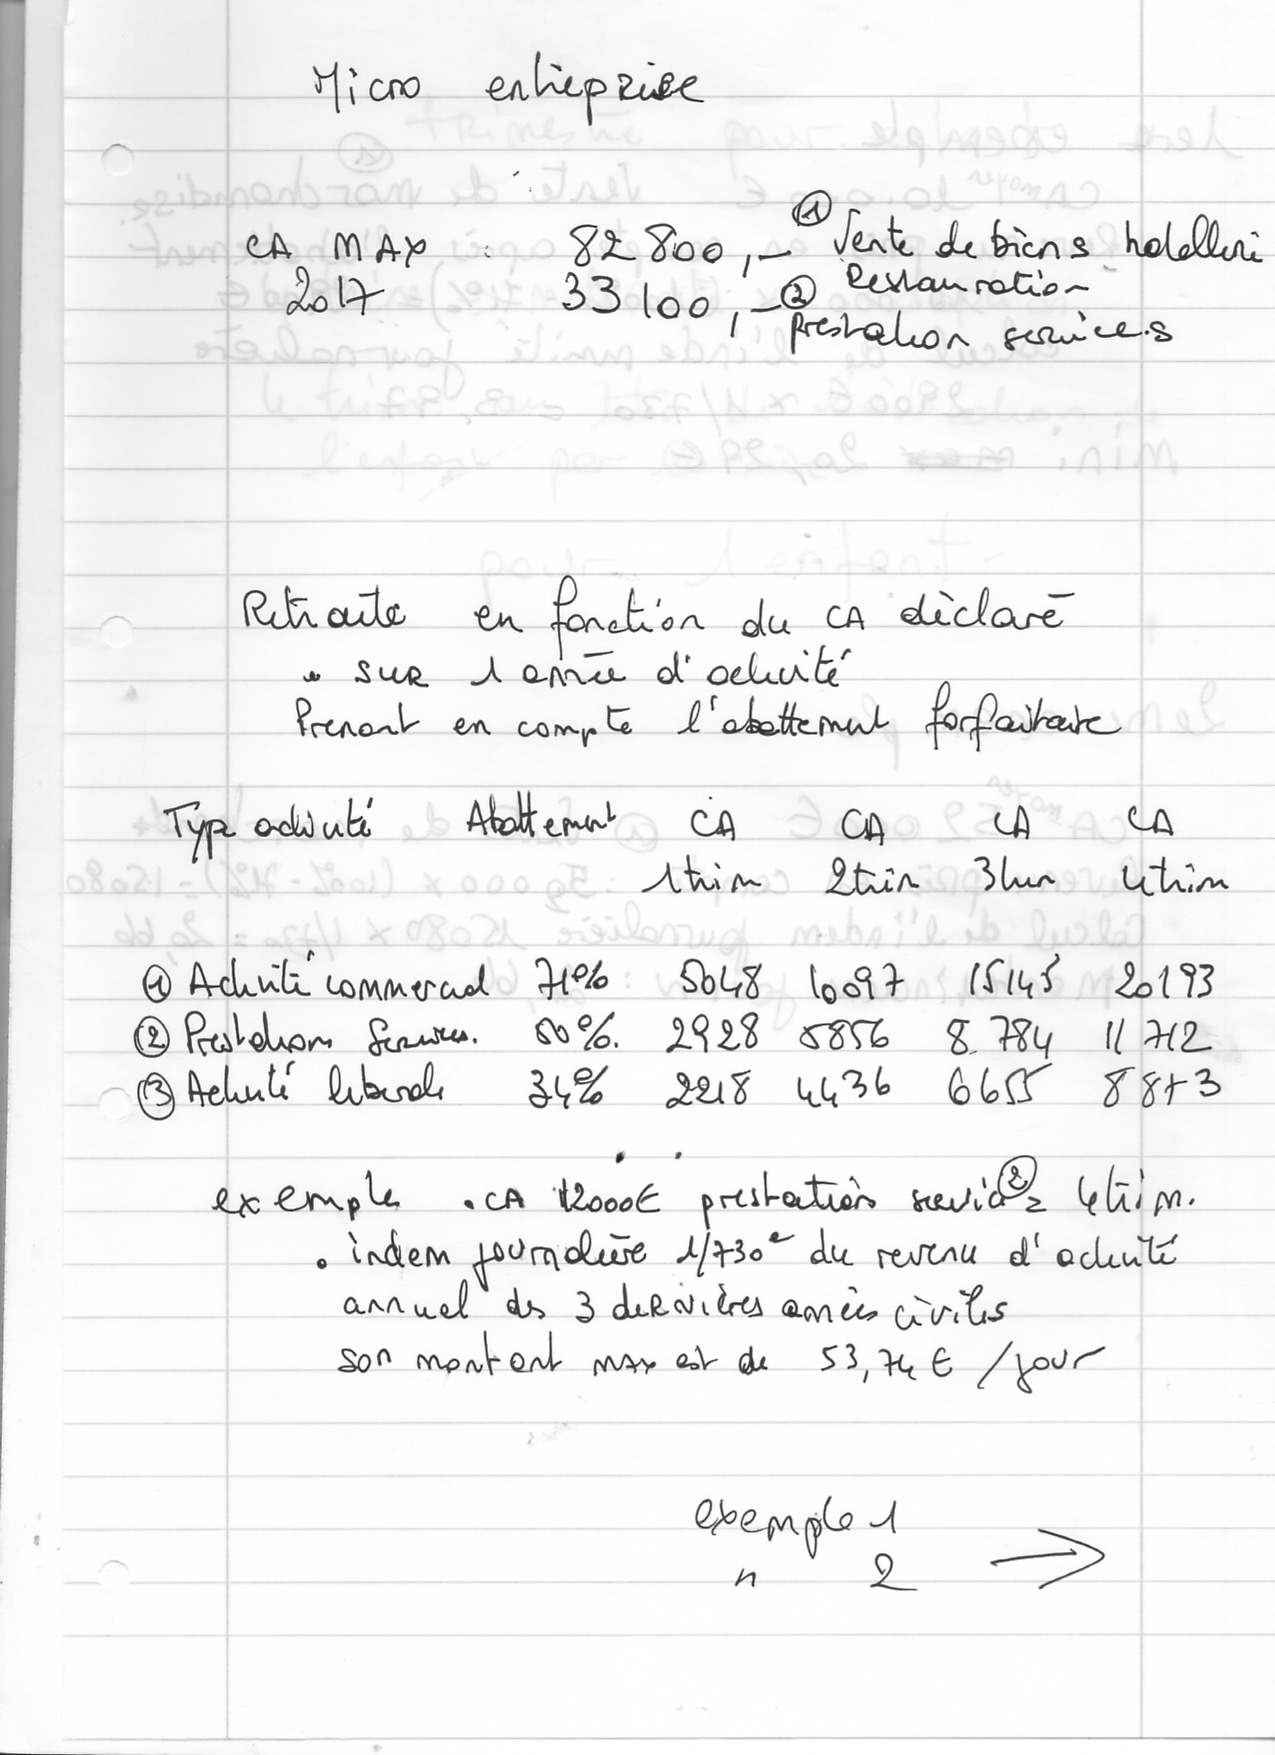 Micro entreprise
CA MAX : 82 800,- ① Vente de biens hotelleri
Restauration
2017 33 100,- ②
prestation services
Retraite en fonction du CA déclaré
• SUR 1 année d'activité
Prenant en compte l'abattement forfaitaire
Type activité Abattement CA CA CA CA
1trim 2trim 3trim 4trim
① Activité commercial 71% 5048 10097 15145 20193
② Prestations Services. 50%. 2928 5856 8.784 11 712
③ Activité liberale 34% 2218 4436 6655 8873
exemple . CA 12000€ prestation service ② 4trim.
• indem journalière 1/730e du revenu d'activité
annuel des 3 dernières années civiles
son montant max est de 53,74 € /jour
exemple 1
" 2 →